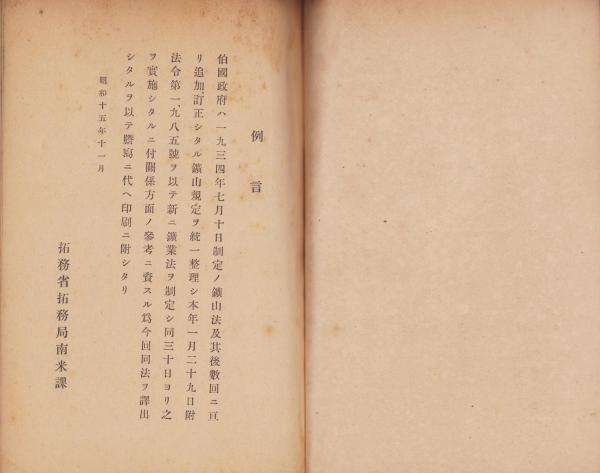 例言
伯國政府ハ一九三四年七月十日制定ノ鑛山法及其後數回ニ亘
リ追加、訂正シタル鑛山規定ヲ統一整理シ本年一月二十九日附
法令第一、九八五號ヲ以テ新ニ鑛業法ヲ制定シ同三十日ヨリ之
ヲ實施シタルニ付關係方面ノ參考ニ資スル爲今回同法ヲ譯出
シタルヲ以テ謄寫ニ代ヘ印刷ニ附シタリ
昭和十五年十一月
拓務省拓務局南米課